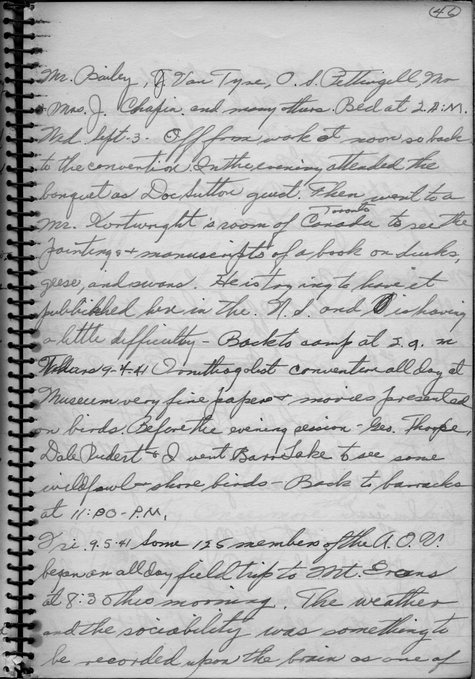 46
Mr. Bailey, J. Van Tyne, O. S. Pettingell, Mr
& Mrs. J. Chapin and many others. Bed at 2 A.M.
Wed. Sept-3- Off from work at noon so back
to the convention. In the evening attended the
banquet as Doc Sutton guest. Then went to a
Mr. Kortwright's room of Toronto Canada to see the
paintings & manuscripts of a book on ducks,
geese, and swans. He is trying to have it
published here in the U. S. and is having
a little difficulty - Back to camp at 2 a. m
Thurs 9-4-41 Ornithogolist convention all day at
Museum very fine papers & movies presented
on birds. Before the evening session - Geo. Thorpe,
Dale & I went Barr Lake to see some
wildfowl & shore birds - Back to barracks
at 11:00 - P.M.
Fri. 9-5-41 Some 125 members of the A.O.U.
began an all day field trip to Mt. Evans
at 8:30 this morning. The weather
and the sociability was something to
be recorded upon the brain as one of